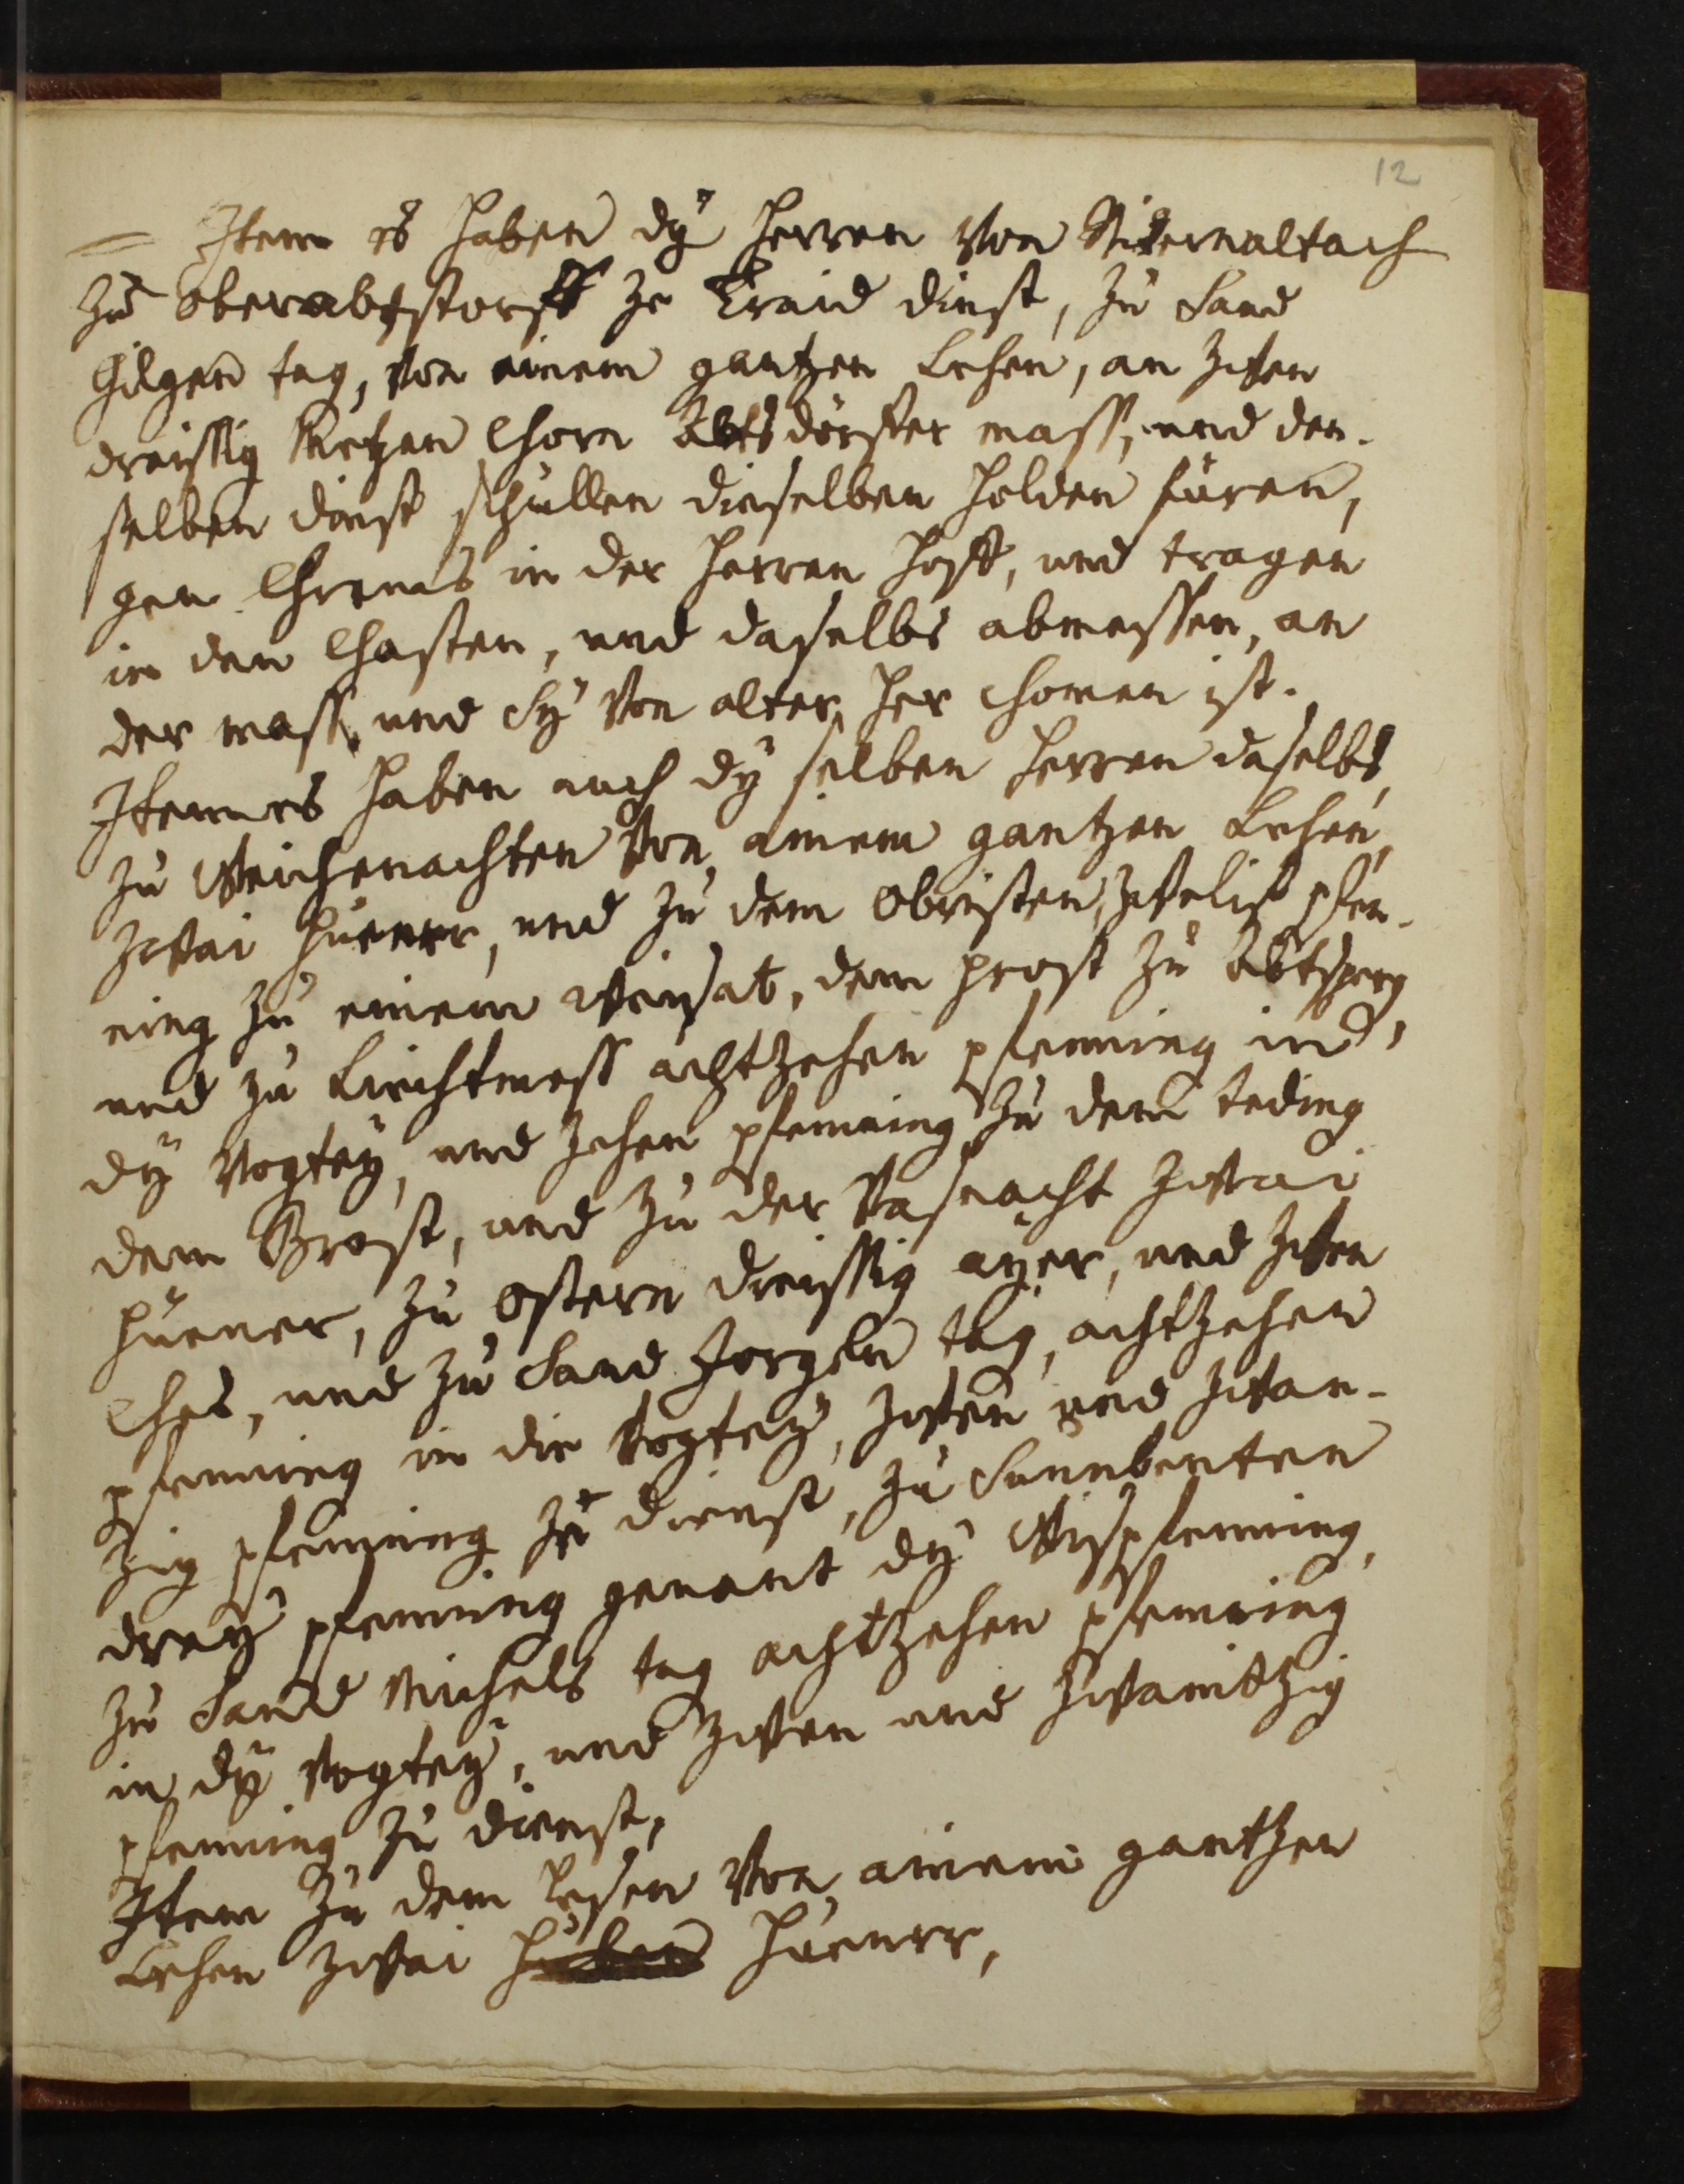 12
= Item es haben dÿ Herren von Nidernaltach
zu Oberabtstorff ze Traid dinst, zu Sand
Gilgen tag, von einem gantzen Lehen, an zwen
dreissig Metzen Chorn Abtsdorffer mass, und den-
selben dinst schullen dieselben Holden füren,
gen Chrems in der Herren Hoff, und tragen
in den Chasten, und daselbs abmessen, an
der mass, und Sÿ von alter her chomen ist.
Item es haben auch dÿ selben Herren daselbs,
zu Weichenachten von ainem gantzen Lehen,
zwai Huener, und zu dem Obristen, zwelif pfen-
ning zu einem Weisat, dem prost zu Abtsperg
und zu Liechtmess achtzehen pfenning in
dÿ Vogteÿ, und zehen pfenning zu dem teding
dem Brost, und zu der Vasnacht zwai
Huener, zu Ostern dreissig aÿer, und zwen
Ches, und zu Sand Jorgen tag, achtzehen
pfenning in die Vogteÿ, zwen und zwan-
zig pfenning zu dienst, zu Sunnbenten
dreÿ pfenning genant dÿ Wispfenning,
zu Sand Michels tag achtzehen pfenning
in dÿ Vogteÿ, und zwen und zwaintzig
pfenning zu dienst,
Item zu dem Lesen von ainem gantzen
Lehen zwai Huener,